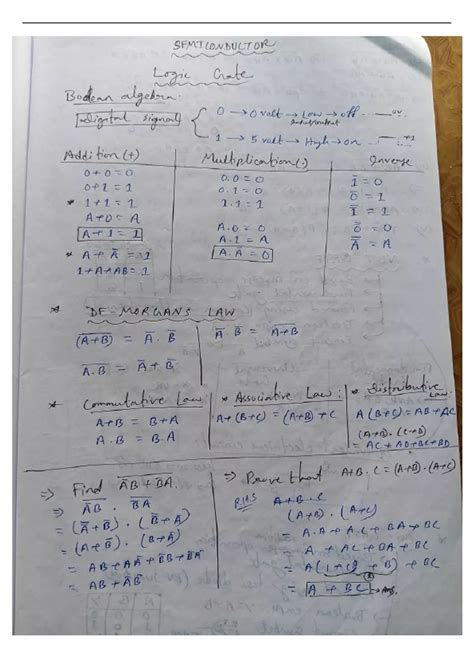 SEMICONDUCTOR
Logic Gate
Boolean algebra:
Digital signal
0 → 0 volt → Low → off
1 → 5 volt → High → on
Addition (+)
0 + 0 = 0
0 + 1 = 1
* 1 + 1 = 1
A + 0 = A
A + 1 = 1
* A + A̅ = 1
1 + A + AB = 1
Multiplication (.)
0.0 = 0
0.1 = 0
1.1 = 1
A.0 = 0
A.1 = A
A.A = 0
Inverse
1̅ = 0
0̅ = 1
1̿ = 1
0̿ = 0
A̿ = A
* DE-MORGANS LAW
(A+B)‾ = A̅ . B̅
(A.B)‾ = A̅ + B̅
A̅ . B̅ = (A+B)‾
* Commutative Law:
A+B = B+A
A.B = B.A
* Associative Law:
A+(B+C) = (A+B)+C
* Distributive Law:
A(B+C) = AB+AC
(A+B).(C+D)
= AC + AD+BC+BD
⇒ Find
⇒ Prove that A+B.C = (A+B).(A+C)
R.H.S
(A+B).(A+C)
= A.A + A.C + BA + BC
= A + AC + BA + BC
= A(1+C + B) + BC
= A + BC → Ans.